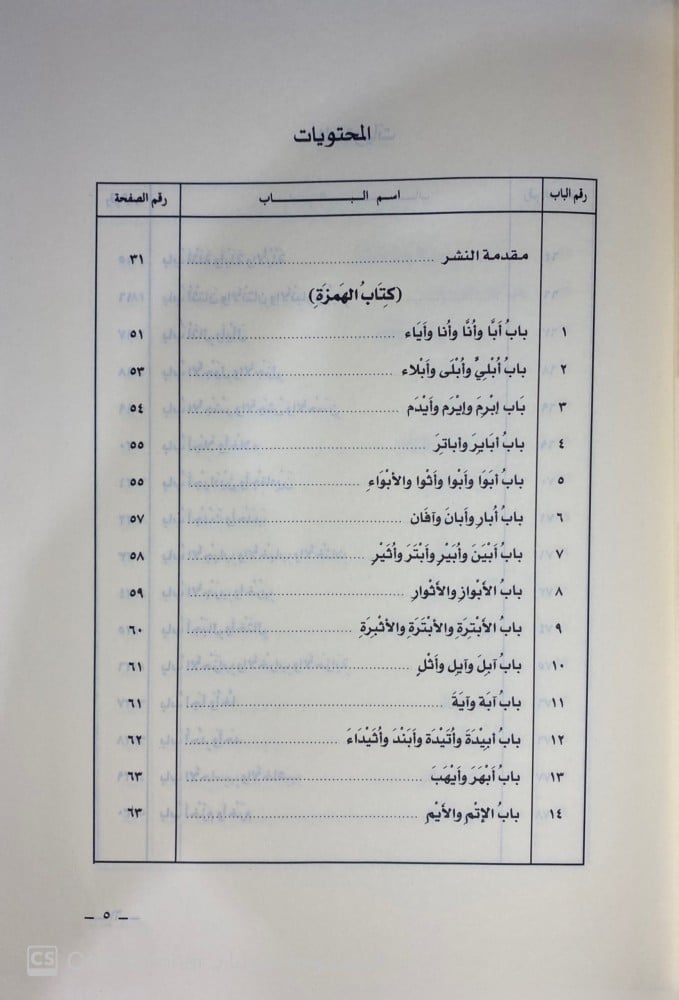 المحتويات
رقم الباب اسم البـــــــــاب رقم الصفحة
مقدمة النشر ........ ٣١
(كِتَابُ الهَمزَةِ)
١ بابُ أبَّا وأُنَّا وأُنا وأَيَاء ........ ٥١
٢ بابُ أُبْلِيٍّ وأُبْلَى وأَبْلاء ........ ٥٣
٣ بَاب إبْرِمَ وإيْرَم وأَيْدَم ........ ٥٤
٤ بابُ أبَايِرَ وأباتِرَ ........ ٥٥
٥ بابُ أبَوَا وأَبْوا وأَثْوا والأبْوَاءِ ........ ٥٥
٦ بابُ أُبار وأَبانَ وآفَان ........ ٥٧
٧ بابُ أَبْيَنَ وأُبَيْرِ وأَبْتَرَ وأُثَيْرِ ........ ٥٨
٨ بابُ الأَبْوازِ والأَثْوارِ ........ ٥٩
٩ بابُ الأَبْتِرَةِ والأَبْتَرَةِ والأَثْبِرَةِ ........ ٦٠
١٠ بابُ آبِلَ وآيِل وأَثْلِ ........ ٦١
١١ بابُ آبَة وآيَةَ ........ ٦١
١٢ بابُ أبِيْدَةَ وأُتَيْدَة وأَبَنْدَ وأُثَيْدَاءَ ........ ٦٢
١٣ بابُ أَبْهَرَ وأَيْهَبَ ........ ٦٣
١٤ بابُ الإتْمِ والأَيْمِ ........ ٦٣
_ ٥ _
CS